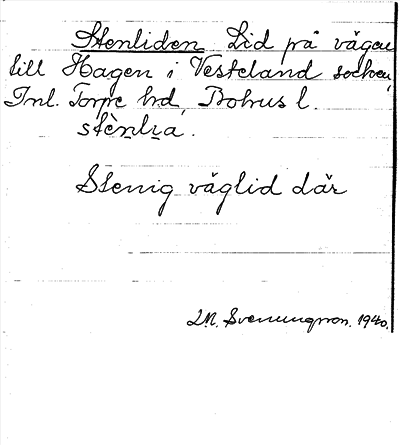 Stenliden Lid på vägen
till Hagen i Vesteland socken,
Inl. Torpe hd, Bohus l.
stènlia.
Stenig väglid där
J.M. Svenungsson. 1940.